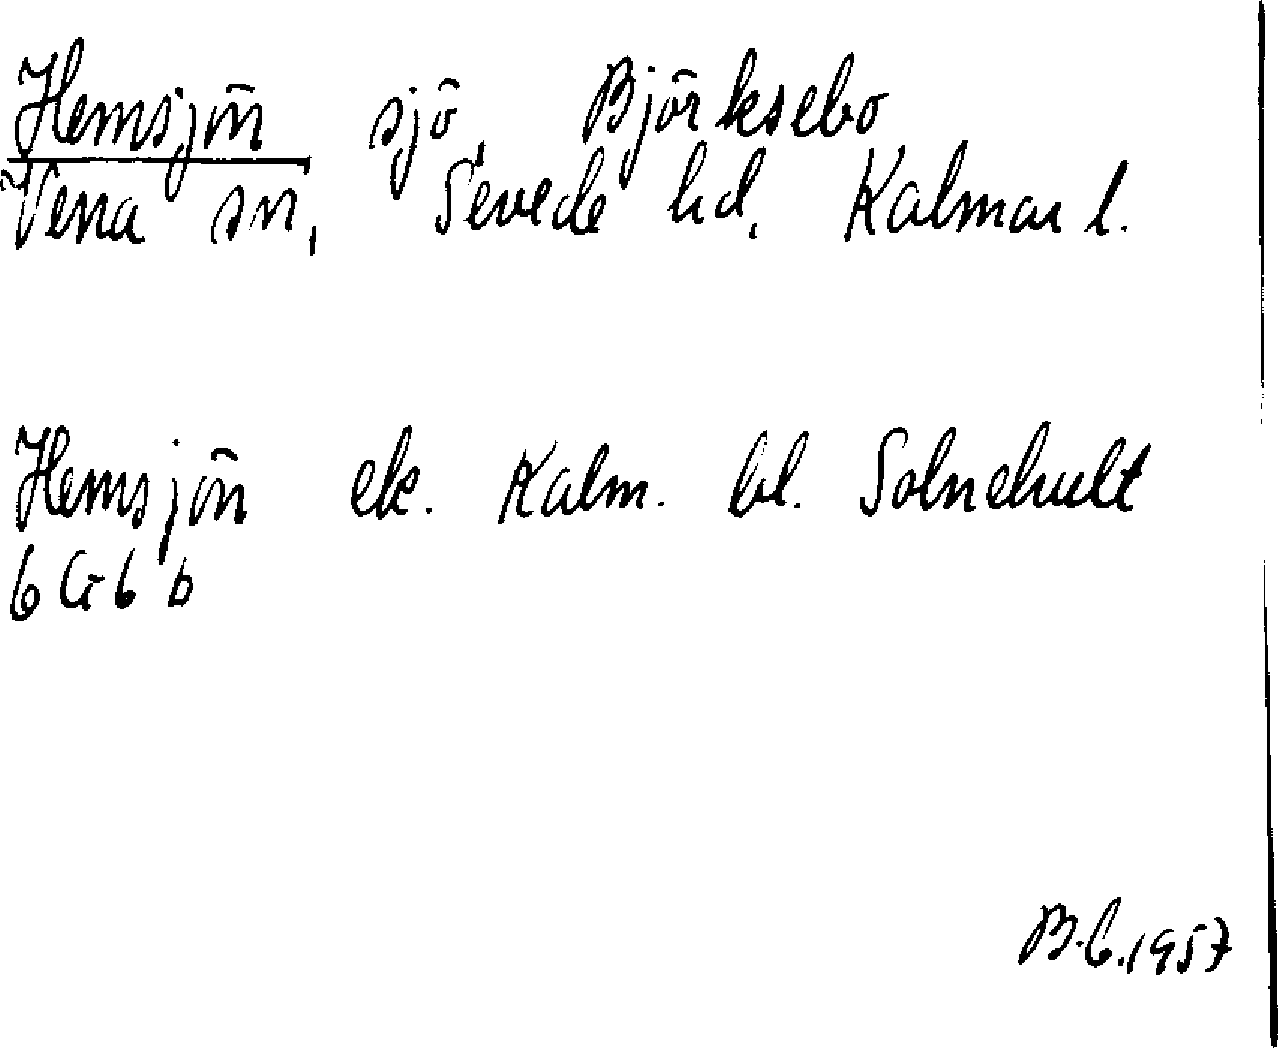 Hemsjön sjö Björksebo
Vena sn, Sevede hd, Kalmar l.
Hemsjön ek. Kalm. bl. Solnehult
6 G 6 b
B.C.1957